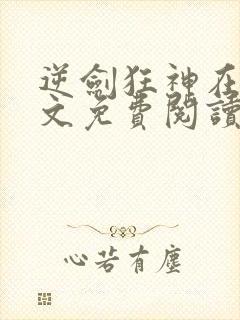 逆劍狂神在
文免費閱讀
心若有塵